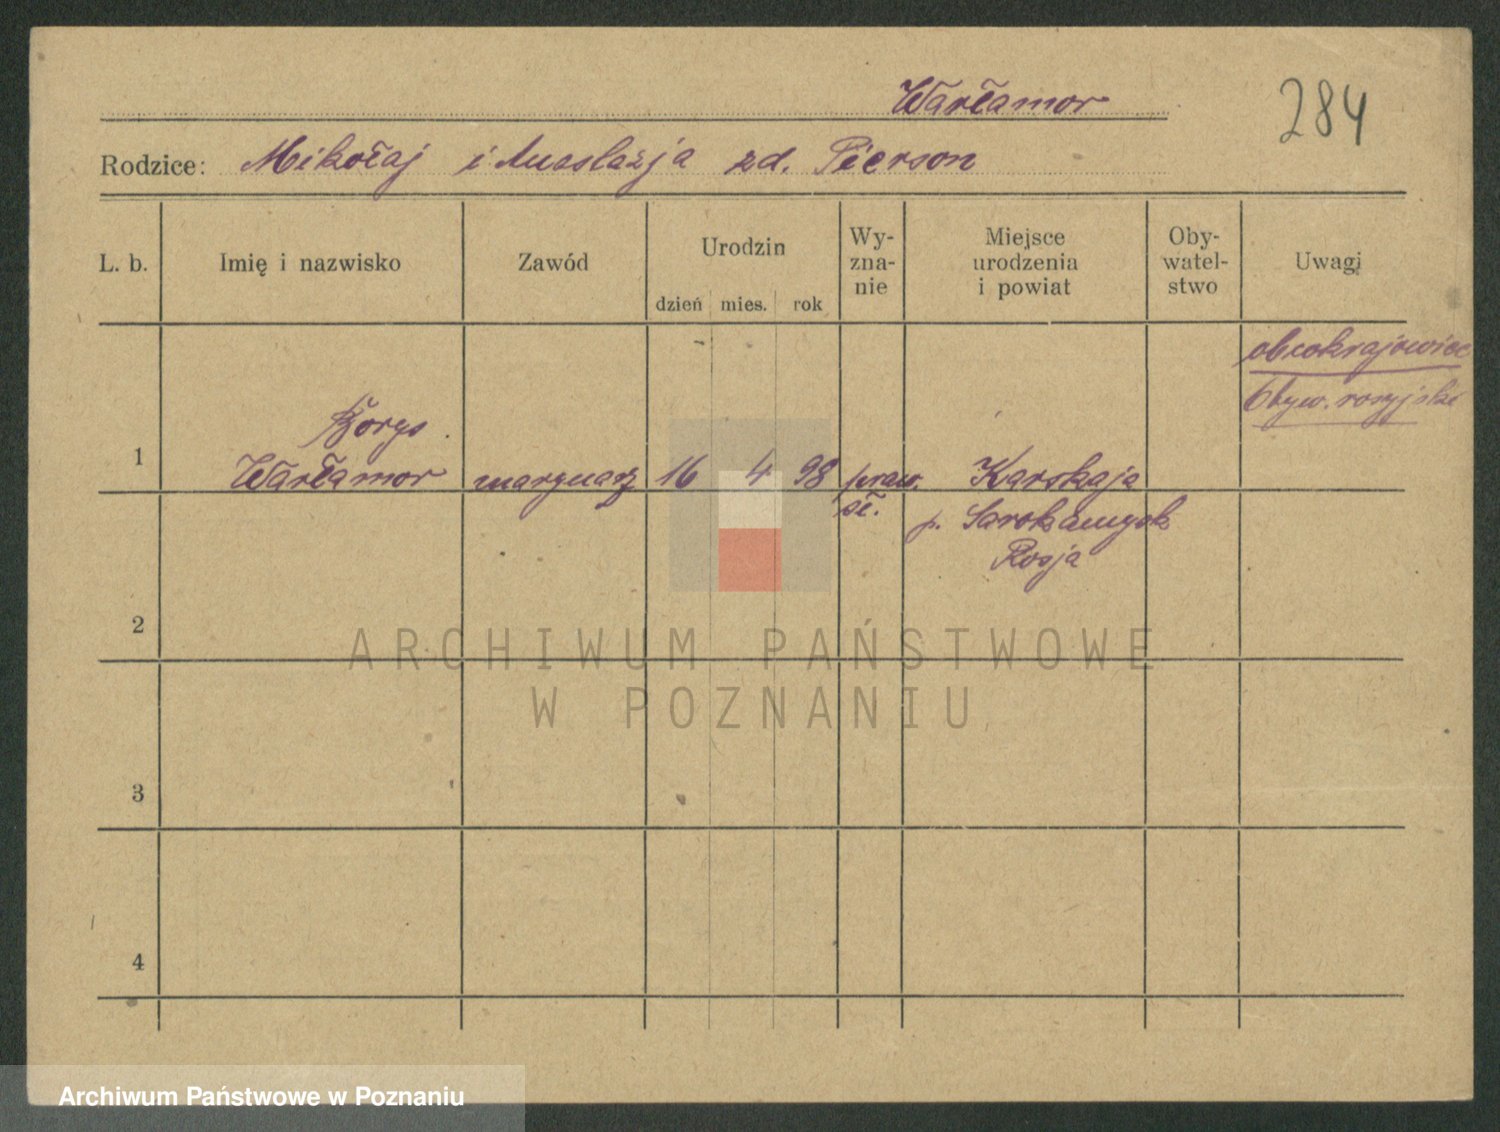 Warłamow
284
Rodzice: Mikołaj i Anastazja zd. Pierson
L. b. Imię i nazwisko Zawód Urodzin dzień mies. rok Wy-zna-nie Miejsce urodzenia i powiat Oby-watel-stwo Uwagi
obcokrajowiec
Obyw. rosyjskie
1 Borys
Warłamow marynarz 16 4 98 praw. Karskaja
sł. p. Sarokamysk
Rosja
2
ARCHIWUM PAŃSTWOWE
W POZNANIU
3
4
Archiwum Państwowe w Poznaniu